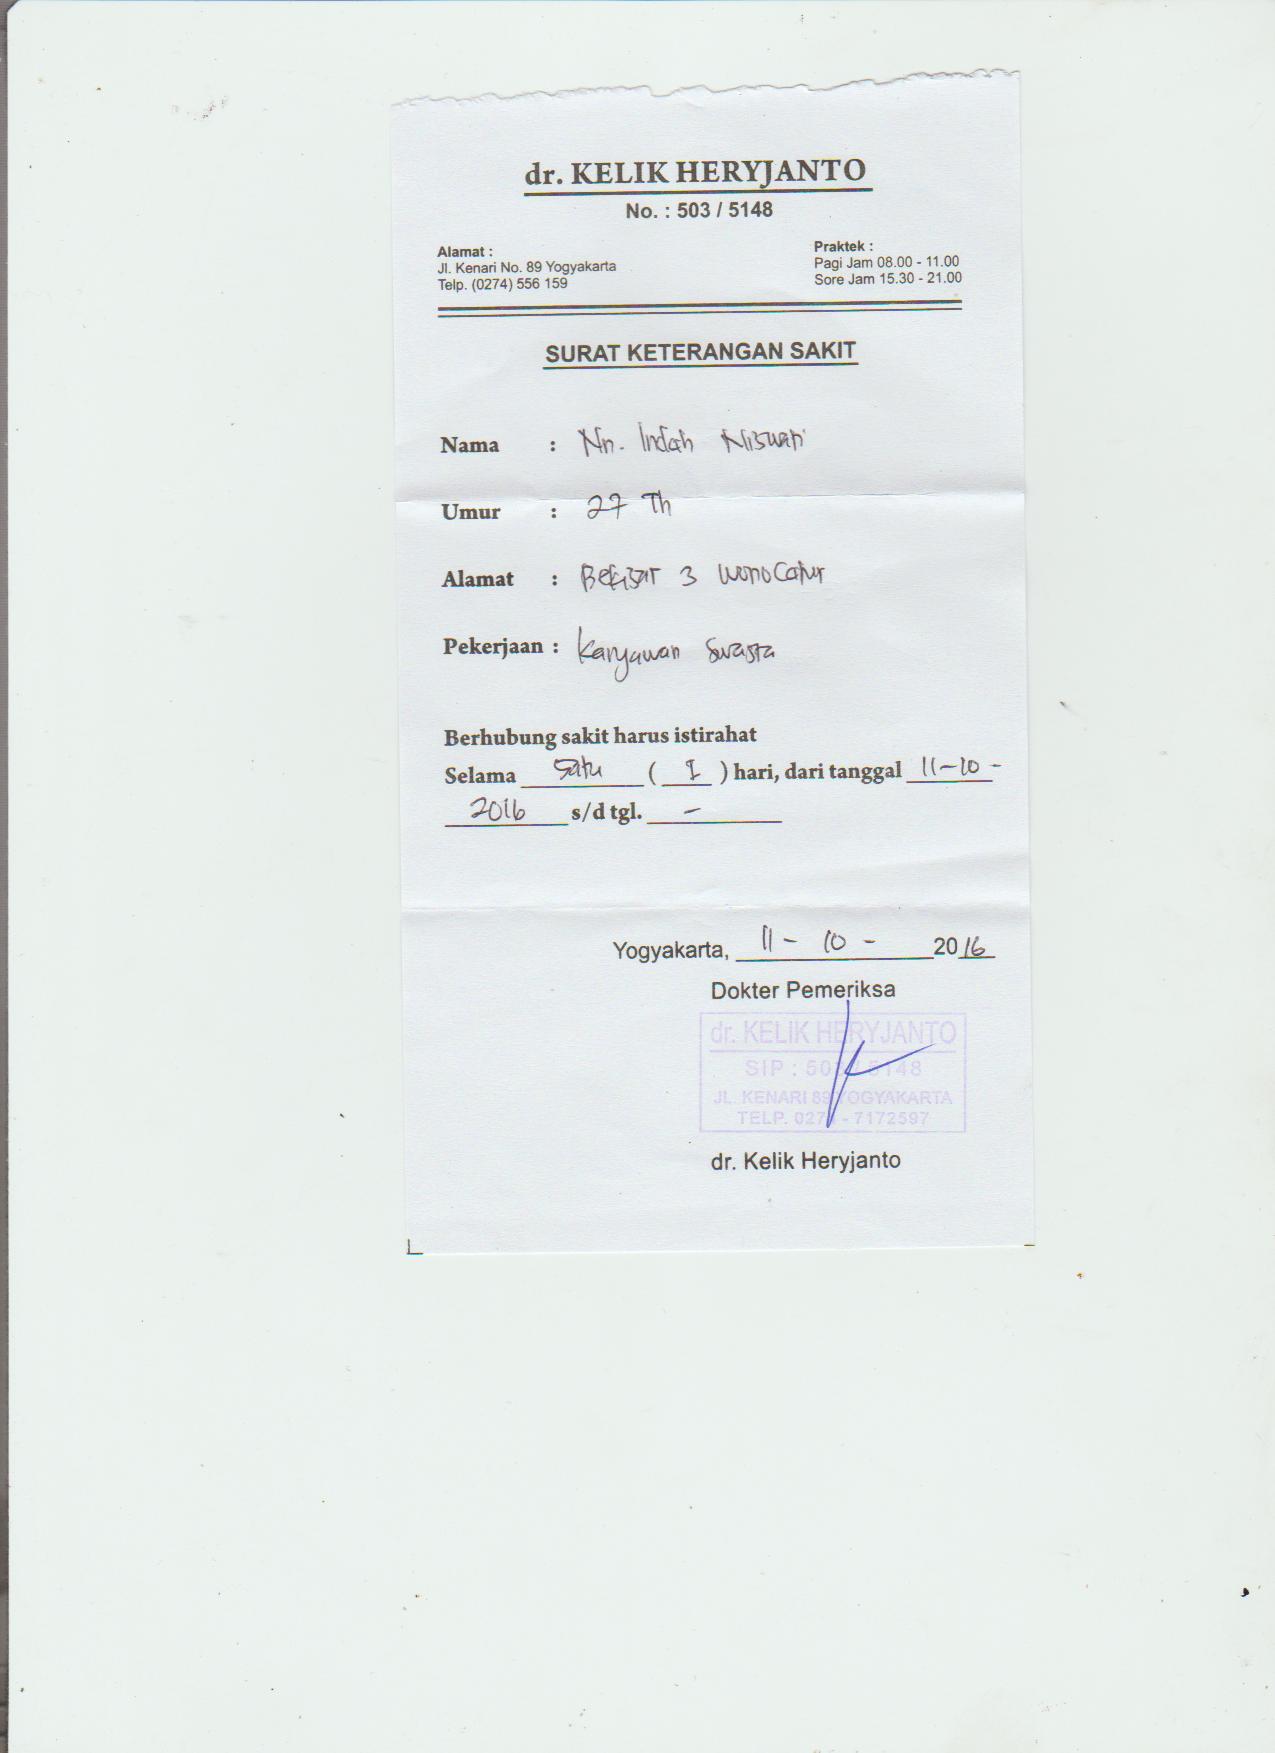 dr. KELIK HERYJANTO
No. : 503 / 5148
Alamat :
Jl. Kenari No. 89 Yogyakarta
Telp. (0274) 556 159
Praktek :
Pagi Jam 08.00 - 11.00
Sore Jam 15.30 - 21.00
SURAT KETERANGAN SAKIT
Nama : Nn. Indah Niswati
Umur : 27 Th
Alamat : Bekisar 3 Wonocatur
Pekerjaan : Karyawan Swasta
Berhubung sakit harus istirahat
Selama satu ( 1 ) hari, dari tanggal 11-10-
2016 s/d tgl. -
Yogyakarta, 11 - 10 - 2016
Dokter Pemeriksa
dr. KELIK HERYJANTO
SIP : 503 / 5148
JL. KENARI 89 YOGYAKARTA
TELP. 0274 - 7172597
dr. Kelik Heryjanto